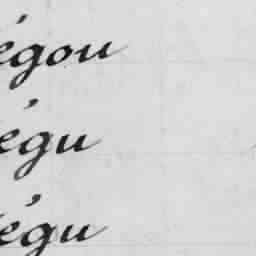 égou
égu
égu